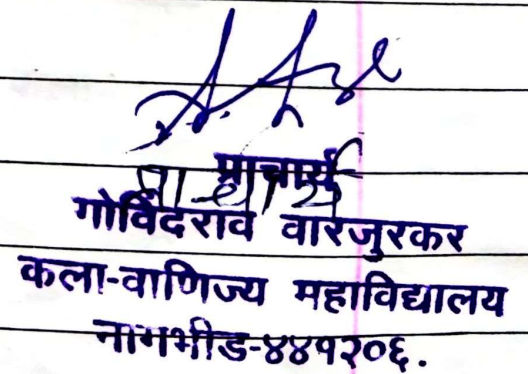 प्राचार्य
प्राचार्य
गोविंदराव वारजुरकर
कला-वाणिज्य महाविद्यालय
नागभीड-४४१२०६.